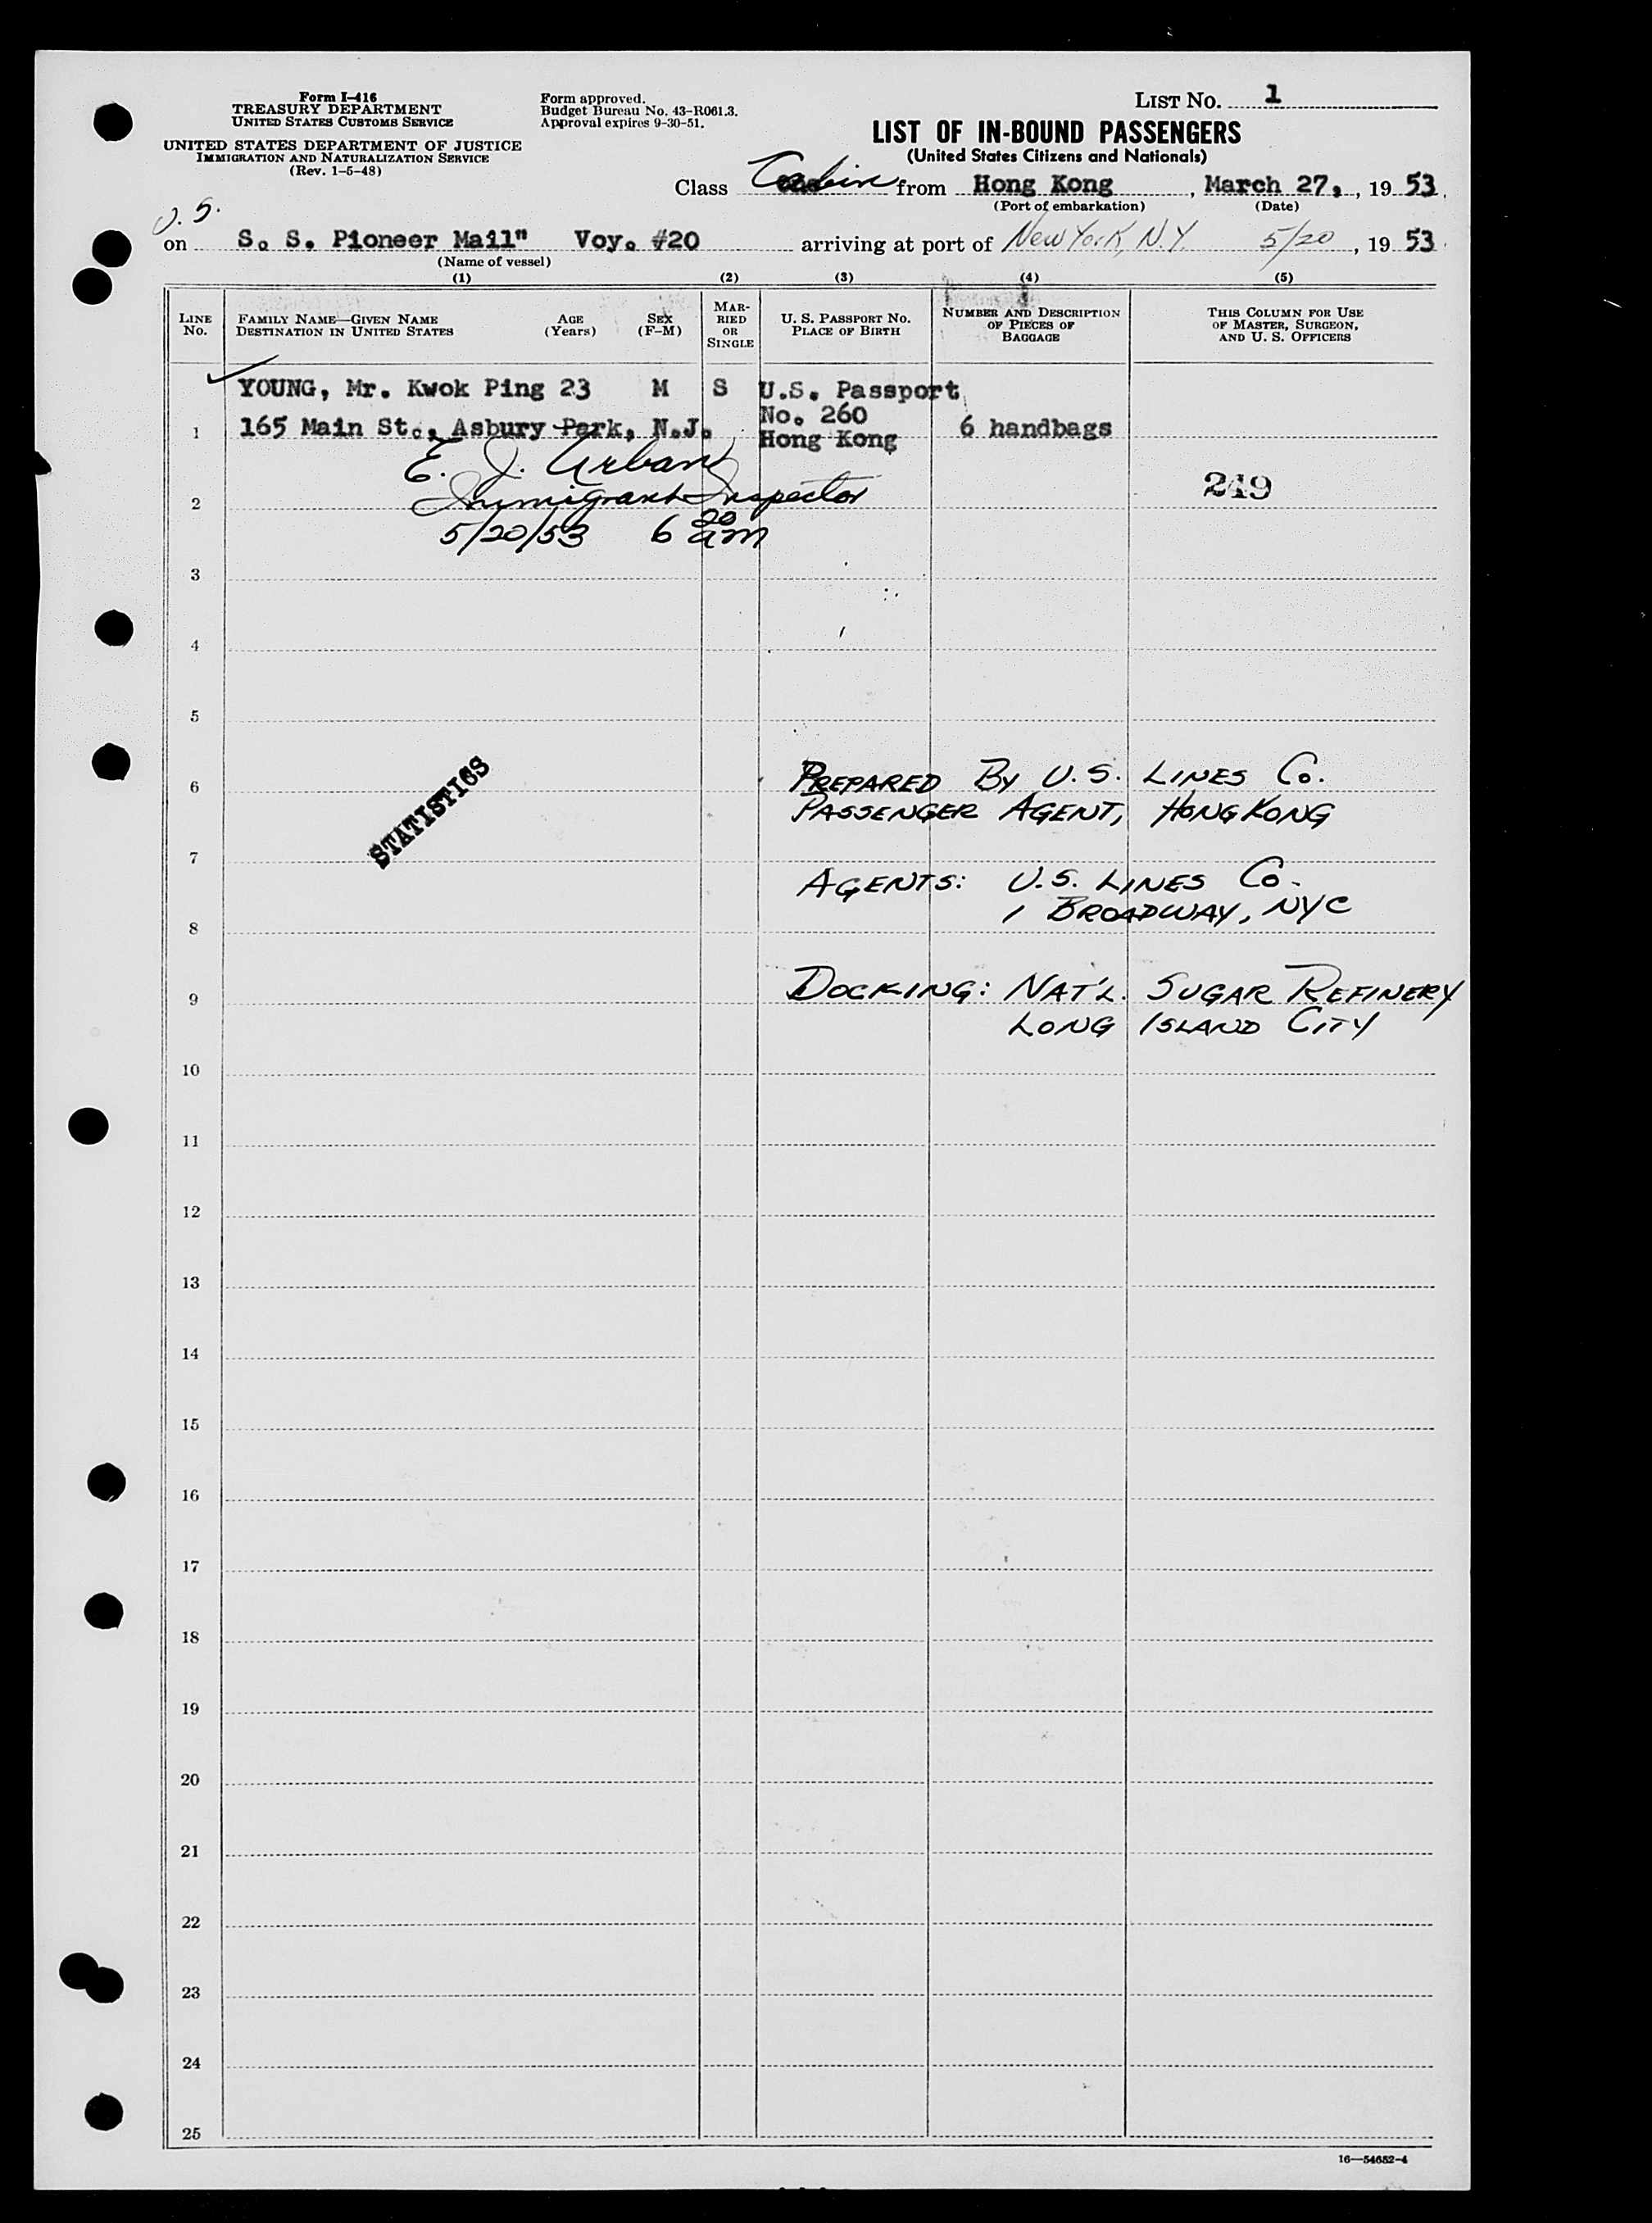 Form I-416
TREASURY DEPARTMENT
UNITED STATES CUSTOMS SERVICE
UNITED STATES DEPARTMENT OF JUSTICE
IMMIGRATION AND NATURALIZATION SERVICE
(Rev. 1-5-48)
Form approved.
Budget Bureau No. 43-R061.3.
Approval expires 9-30-51.
LIST No. 1
LIST OF IN-BOUND PASSENGERS
(United States Citizens and Nationals)
Class Cabin from Hong Kong, March 27, 1953.
(Port of embarkation) (Date)
U. S.
on S. S. Pioneer Mail" Voy. #20 arriving at port of New York, N.Y. 5/20, 1953.
(Name of vessel)
(1) (2) (3) (4) (5)
LINE No.
FAMILY NAME—GIVEN NAME
DESTINATION IN UNITED STATES
AGE (Years)
SEX (F-M)
MARRIED OR SINGLE
U. S. PASSPORT NO.
PLACE OF BIRTH
NUMBER AND DESCRIPTION OF PIECES OF BAGGAGE
THIS COLUMN FOR USE OF MASTER, SURGEON, AND U. S. OFFICERS
YOUNG, Mr. Kwok Ping 23 M S U.S. Passport
No. 260
1 165 Main St., Asbury Park, N.J. Hong Kong 6 handbags
E. J. Urban
249
2 Immigrant Inspector
5/20/53 6 20 am
3
4
5
6 PREPARED BY U.S. LINES CO.
STATISTICS
PASSENGER AGENT, HONG KONG
7
AGENTS: U.S. LINES CO.
1 BROADWAY, NYC
8
9 DOCKING: NAT'L. SUGAR REFINERY
LONG ISLAND CITY
10
11
12
13
14
15
16
17
18
19
20
21
22
23
24
25
16—54652-4